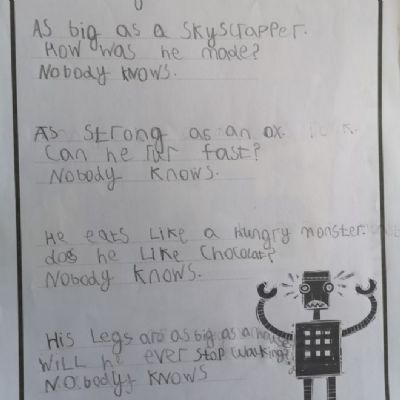 As big as a skyscrapper.
How was he made?
Nobody knows.
As strong as an ox.
Can he fast?
Nobody knows.
He eats like a hungry monster.
does he like Chocolat?
Nobody knows.
His legs are as big as a
will he ever stop walking?
Nobody knows